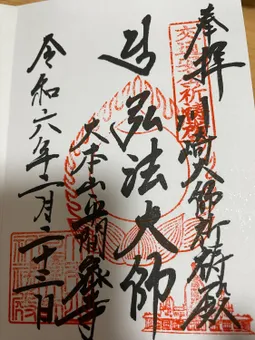 奉拝
川崎大師祈祷殿
弘法大師
大本山平間寺
令和六年二月二十三日